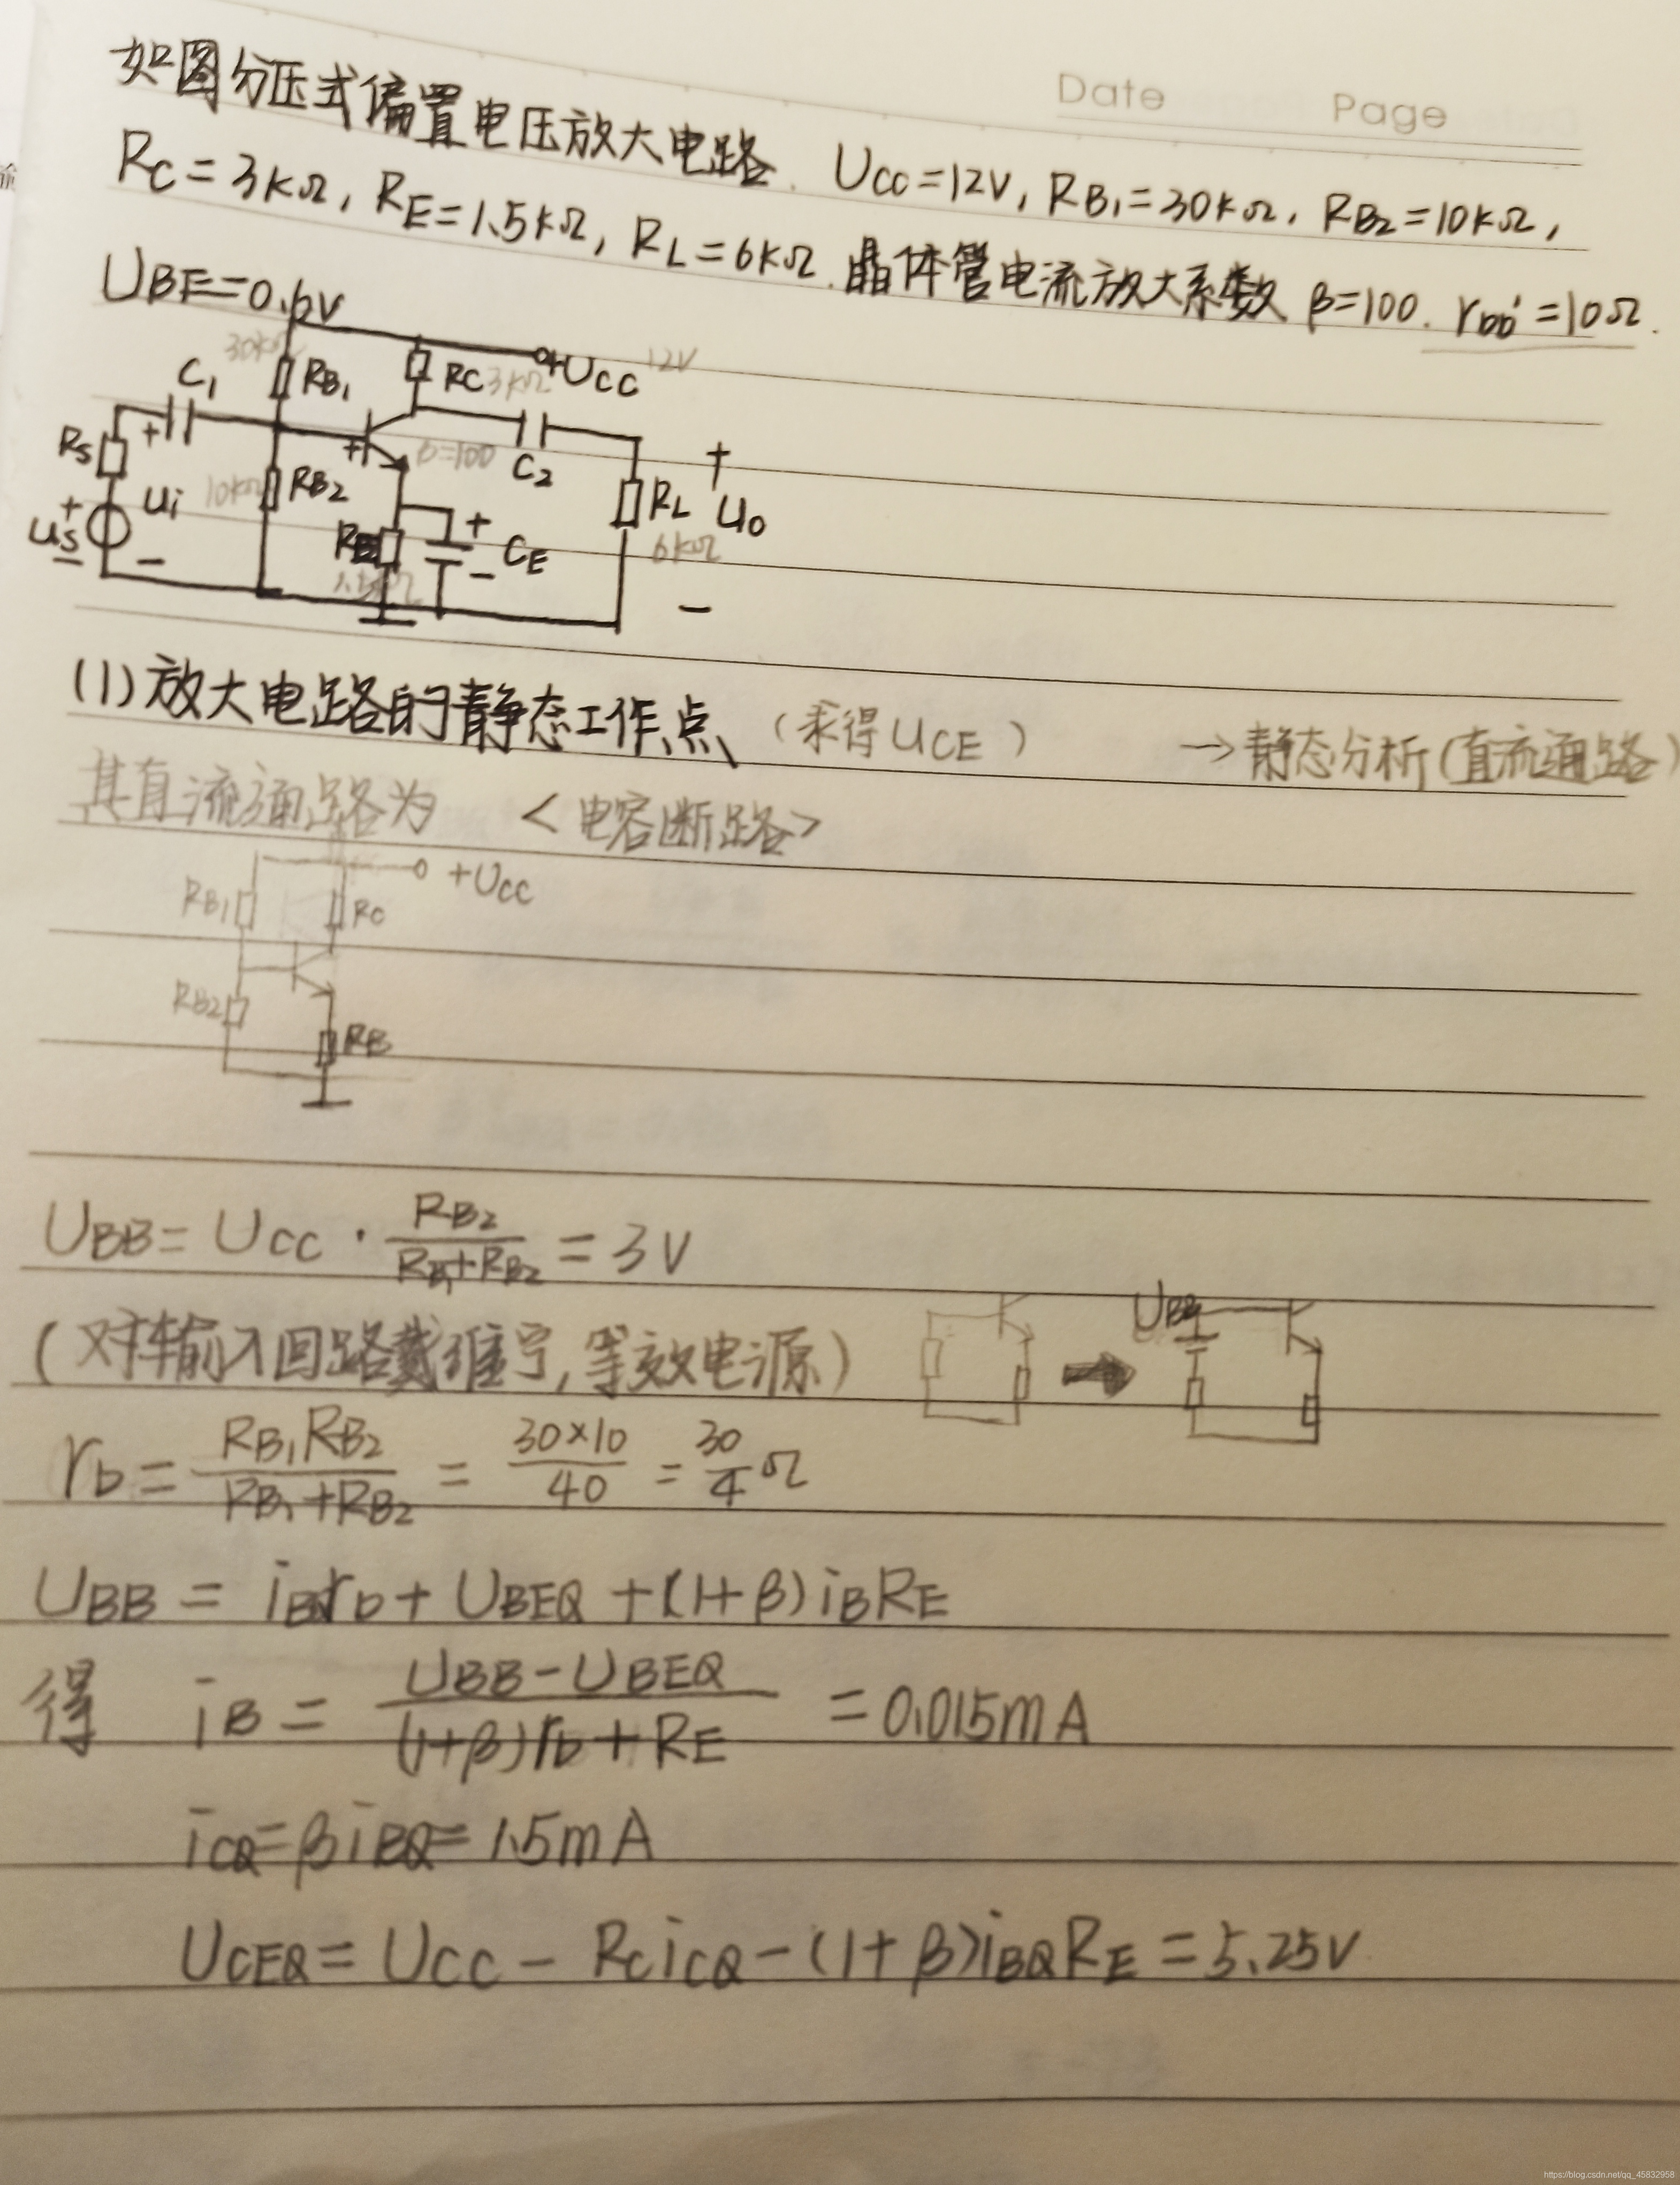 Date Page
如图分压式偏置电压放大电路. UCC=12V, RB1=30kΩ, RB2=10kΩ,
RC=3kΩ, RE=1.5kΩ, RL=6kΩ. 晶体管电流放大系数 β=100. rbb'=10Ω.
UBE=0.6V
30kΩ RB1 RC 3kΩ +UCC 12V
C1
RS + + β=100 C2 +
+ ui 10kΩ RB2 RL uo
us RE + CE 6kΩ
− − 1.5kΩ − −
(1) 放大电路的静态工作点、(求得UCE) →静态分析(直流通路)
其直流通路为 <电容断路>
+UCC
RB1 RC
RB2
RE
UBB = UCC · RB2/(RB1+RB2) = 3V
(对输入回路戴维宁,等效电源) UBB
rb = RB1RB2/(RB1+RB2) = 30×10/40 = 30/4 Ω
UBB = iBQrb + UBEQ + (1+β)iBRE
得 iB = (UBB-UBEQ)/((1+β)rb+RE) = 0.015mA
iCQ=βiBQ=1.5mA
UCEQ = UCC - RCiCQ - (1+β)iBQRE = 5.25V
https://blog.csdn.net/qq_45832958